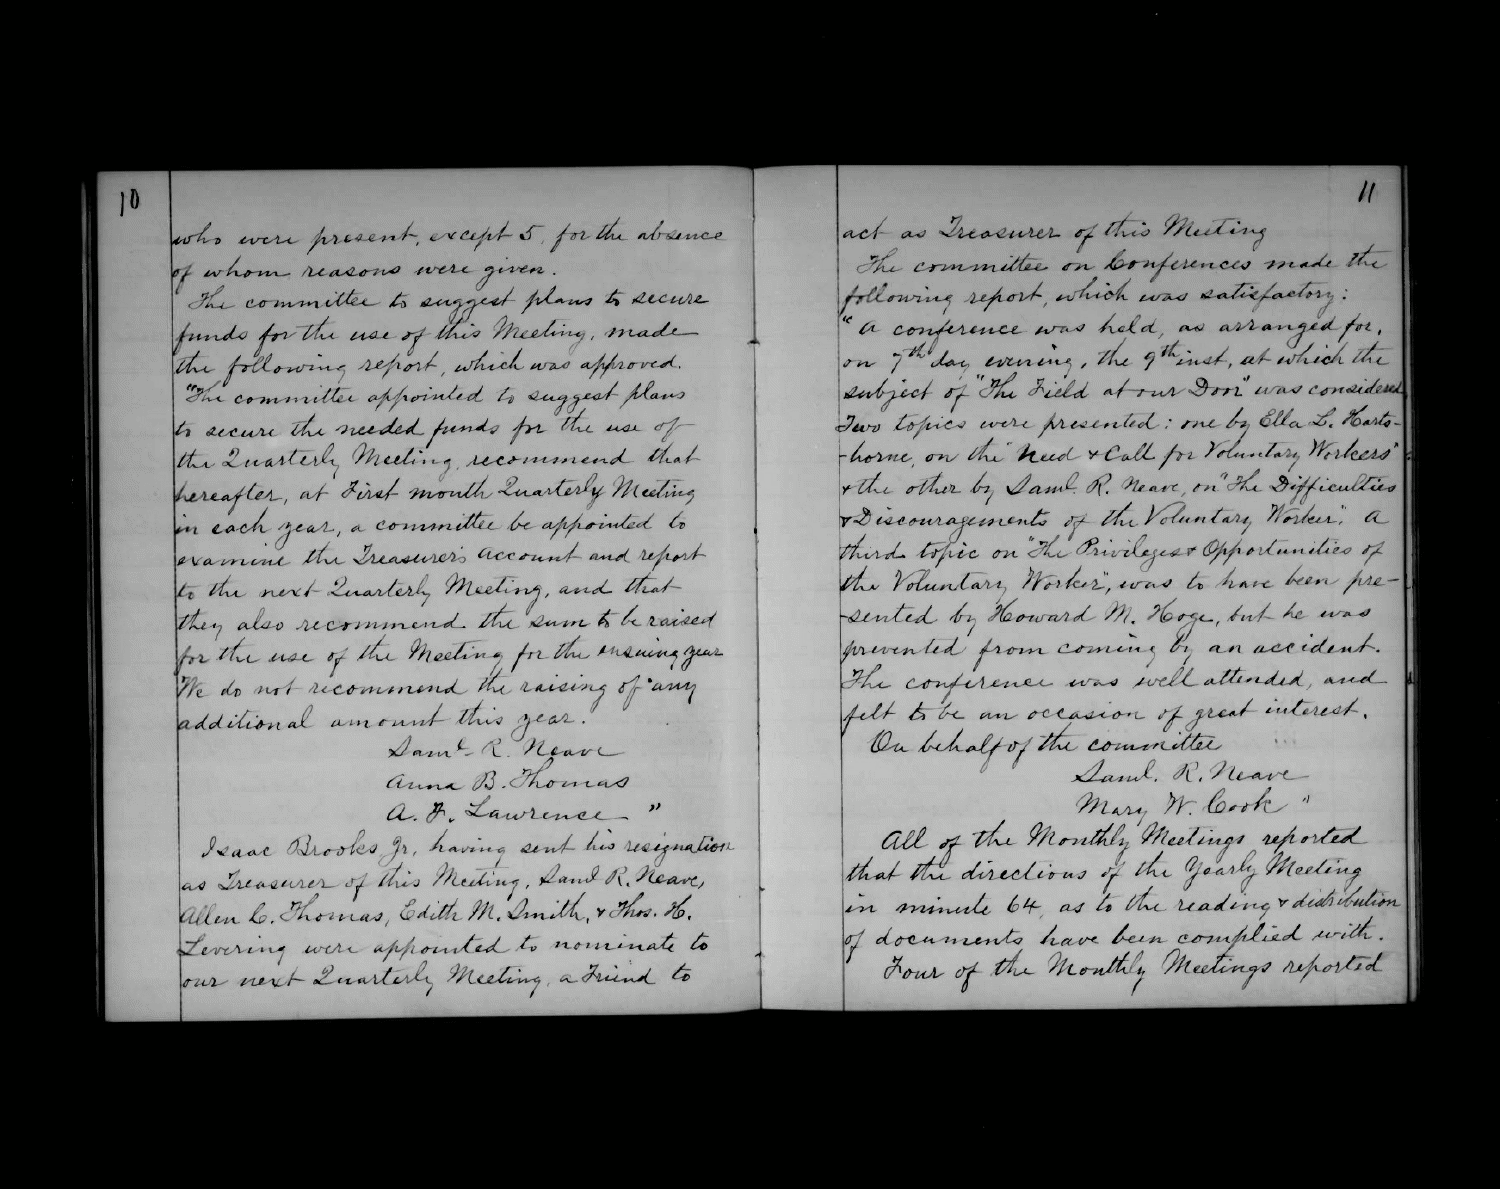 10
who were present, except 5, for the absence
of whom reasons were given.
The committee to suggest plans to secure
funds for the use of this Meeting, made
the following report, which was approved.
"The committee appointed to suggest plans
to secure the needed funds for the use of
the Quarterly Meeting, recommend that
hereafter, at First month Quarterly Meeting
in each year, a committee be appointed to
examine the Treasurer's Account and report
to the next Quarterly Meeting, and that
they also recommend the sum to be raised
for the use of the Meeting for the ensuing year
We do not recommend the raising of any
additional amount this year.
Saml. R. Neave
Anna B. Thomas
A. F. Lawrence "
Isaac Brooks Jr. having sent his resignation
as Treasurer of this Meeting, Saml R. Neave,
Allen C. Thomas, Edith M. Smith, & Thos. H.
Levering were appointed to nominate to
our next Quarterly Meeting, a Friend to
11
act as Treasurer of this Meeting
The committee on Conferences made the
following report, which was satisfactory:
"A conference was held, as arranged for,
on 7th day evening, the 9th inst, at which the
subject of "The Field at our Door" was considered
Two topics were presented: one by Ella L. Harts-
-horne, on the "Need & Call for Voluntary Workers"
& the other by Saml. R. Neave, on "The Difficulties
& Discouragements of the Voluntary Worker". A
third topic on "The Privileges & Opportunities of
the Voluntary Worker", was to have been pre-
-sented by Howard M. Hoge, but he was
prevented from coming by an accident.
The conference was well attended, and
felt to be an occasion of great interest.
On behalf of the committee
Saml. R. Neave
Mary W. Cook "
All of the Monthly Meetings reported
that the directions of the Yearly Meeting
in minute 64, as to the reading & distribution
of documents have been complied with.
Four of the Monthly Meetings reported